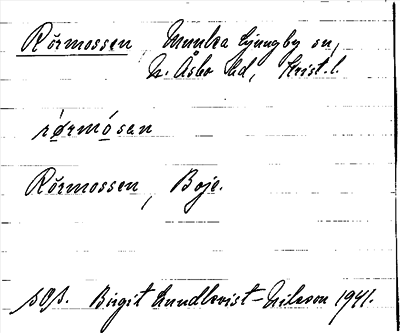 Rörmossen, Munka Ljungby sn,
N. Åsbo hd, Krist. l.
rørmósan
Rörmossen, Boje.
SOS. Birgit Lundkvist-Nilsson 1941.